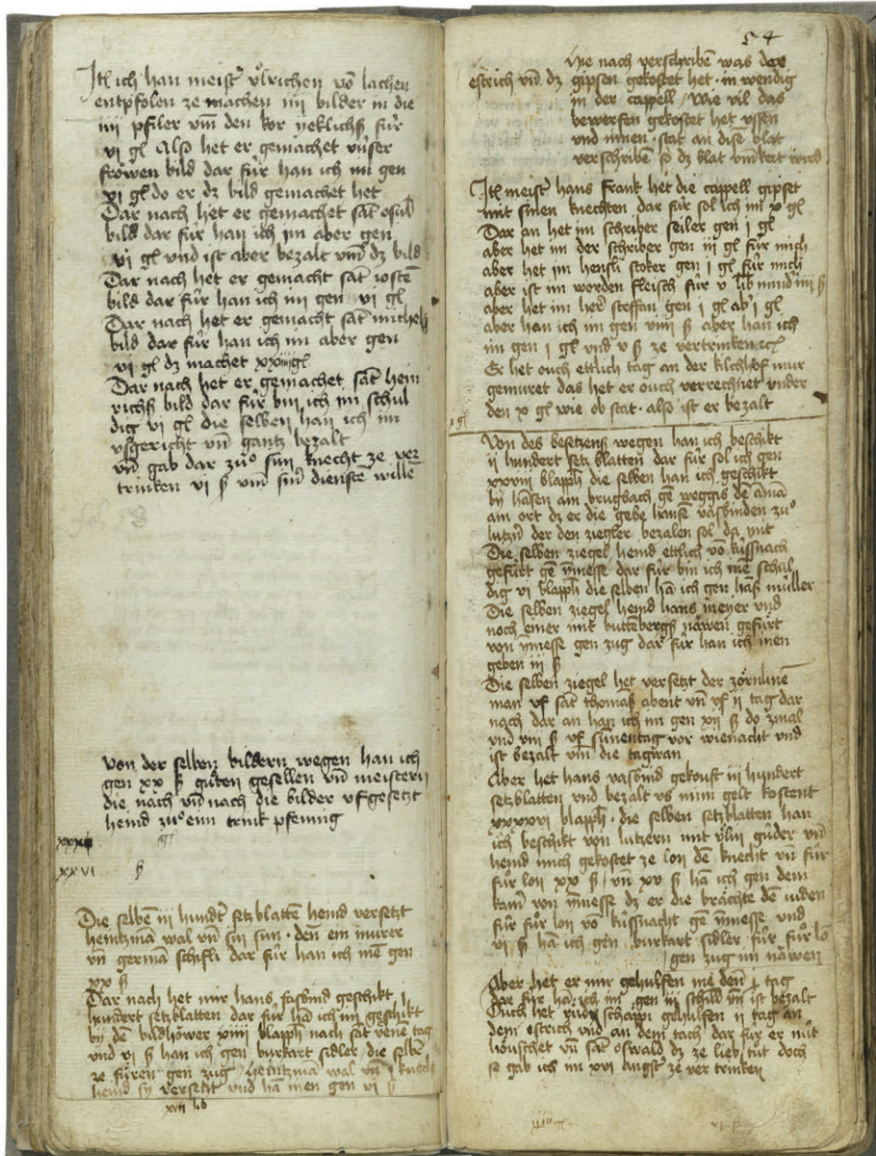 Itē ich han meistʾ ůlrichen vō lachen
entpfolen ze machen iiii bilder in die
iiii pfiler vm̄ den kor yeklichß für
vi gl Also het er gemachet vnser
frowen bild dar für han ich im gen
vi gl do er dz bild gemachet het
Dar nach het er gemachet sāt oswald
bild dar für han ich im aber gen
vi gl vnd ist aber bezalt vm̄ dz bild
Dar nach het er gemacht sāt iostē
bild dar für han ich im gen vi gl
Dar nach het er gemacht sāt michel
bild dar für han ich im aber gen
vi gl dz machet xxiiii gl
Dar nach het er gemachet sāt hein
richß bild dar für bin ich im schul
dig vi gl die selben han ich im
vsgericht vn̄ gantz bezalt
vn̄ gab dar zuͦ sim knecht ze ver
trinken vi ß vm̄ sinʾ dienste willē
von der selben bildern wegen han ich
gen xx ß guten gesellen vn̄ meistern
die nach vn̄ nach die bilder vfgesetzt
heind zuͦ eim trink pfennig
xxvi ß
Die selbē iii hundʾt setzblattē heind versetzt
heintzmā wal vn̄ sin sun · den ein murer
vn̄ germā schifli dar für han ich inē gen
xx ß
Dar nach het mir hans fasbind geschikt i
hundert setzblatten dar für hā ich im geschikt
bi dem bildhöwer xiiii blapphʾ nach sāt vrenē tag
vnd vi ß han ich gen burkart sidler die selbē
ze füren gen zug / heintzmā wal vn̄ i knecht
heind sy versetzt vnd hā inen gen vi ß
xvii lib
54
Hie nach verschribē was der
estrich vn̄ dz gipsen gekostet het · in wendig
in der cappell / Wie vil das
bewerfen gekostet het vssen
vnd innen · stat an disē blat
verschriben so dz blat vmkert wird
Itē meistʾ hans frank het die cappell gipset
mit sinen knechten dar für sol ich im x gl
Dar an het im schriber seiler gen i gl
aber het im der schriber gen iii gl für mich
aber het im hensli stoker gen i gl für mich
aber ist im worden fleisch für v lib mindʾ iiii ß
aber het im herʾ steffan gen i gl abʾ i gl
aber han ich im gen viii ß aber han ich
im gen i gl vnd v ß ze vertrinken
Er het ouch ettlich tag an der kilchhof mur
gemuret das het er ouch verrechnet vnder
den x gl wie ob stat · also ist er bezalt
x gl
Von des besetzens wegen han ich beschikt
ii hundert setz blatten dar für sol ich gen
xxviii blapphʾ die selben han ich geschikt
bi hāsen am brugbach gē weggis dē amā
am ort dz er die gebe hansē vasbinden zuͦ
lutzʾn der den ziegler bezalen sol da mit
Die selben ziegel heind ettlich vō küssnach
gefürt gē ymesse dar für bin ich inē schul
dig vi blapphʾ die selben hā ich gen hāß müller
Die selben ziegel heind hans meyer vnd
noch einer mit buttēbergß näwen gefürt
von ymesse gen zug dar für han ich inen
geben iii ß
Die selben ziegel het versetzt der zörnlinē
man vf sāt thomaß abent vn̄ vf ii tag dar
nach dar an han ich im gen xii ß do zmal
vnd viii ß vf sunnentag vor wienacht vnd
ist bezalt vm̄ die tagwan
Aber het hans vasbind gekouft iii hundert
setzblatten vnd bezalt vs mim gelt kostent
xxxxvi blapphʾ · die selben setzblatten han
ich beschikt von lutzern mit ülin guder vn̄
heind mich gekostet ze lon dē knecht vn̄ für
für lon xx ß / vn̄ xv ß hā ich gen dem
von ymesse dz er die brächte dē iuden
für für lon vō küssnacht gē ymesse vnd
vi ß hā ich gen burkart sidler für für lō
gen zug im näwen
Aber het er mir gehulfen me den i tag
dar für hā ich im gen iii schill vn̄ ist bezalt
Ouch het rudy schäppi gehulfen ii tag an
dem estrich vnd an dem tach dar für er nüt
höuschet vn̄ sāt oswald dz ze lieb tut doch
so gab ich im xvi angstʾ ze ver trinken